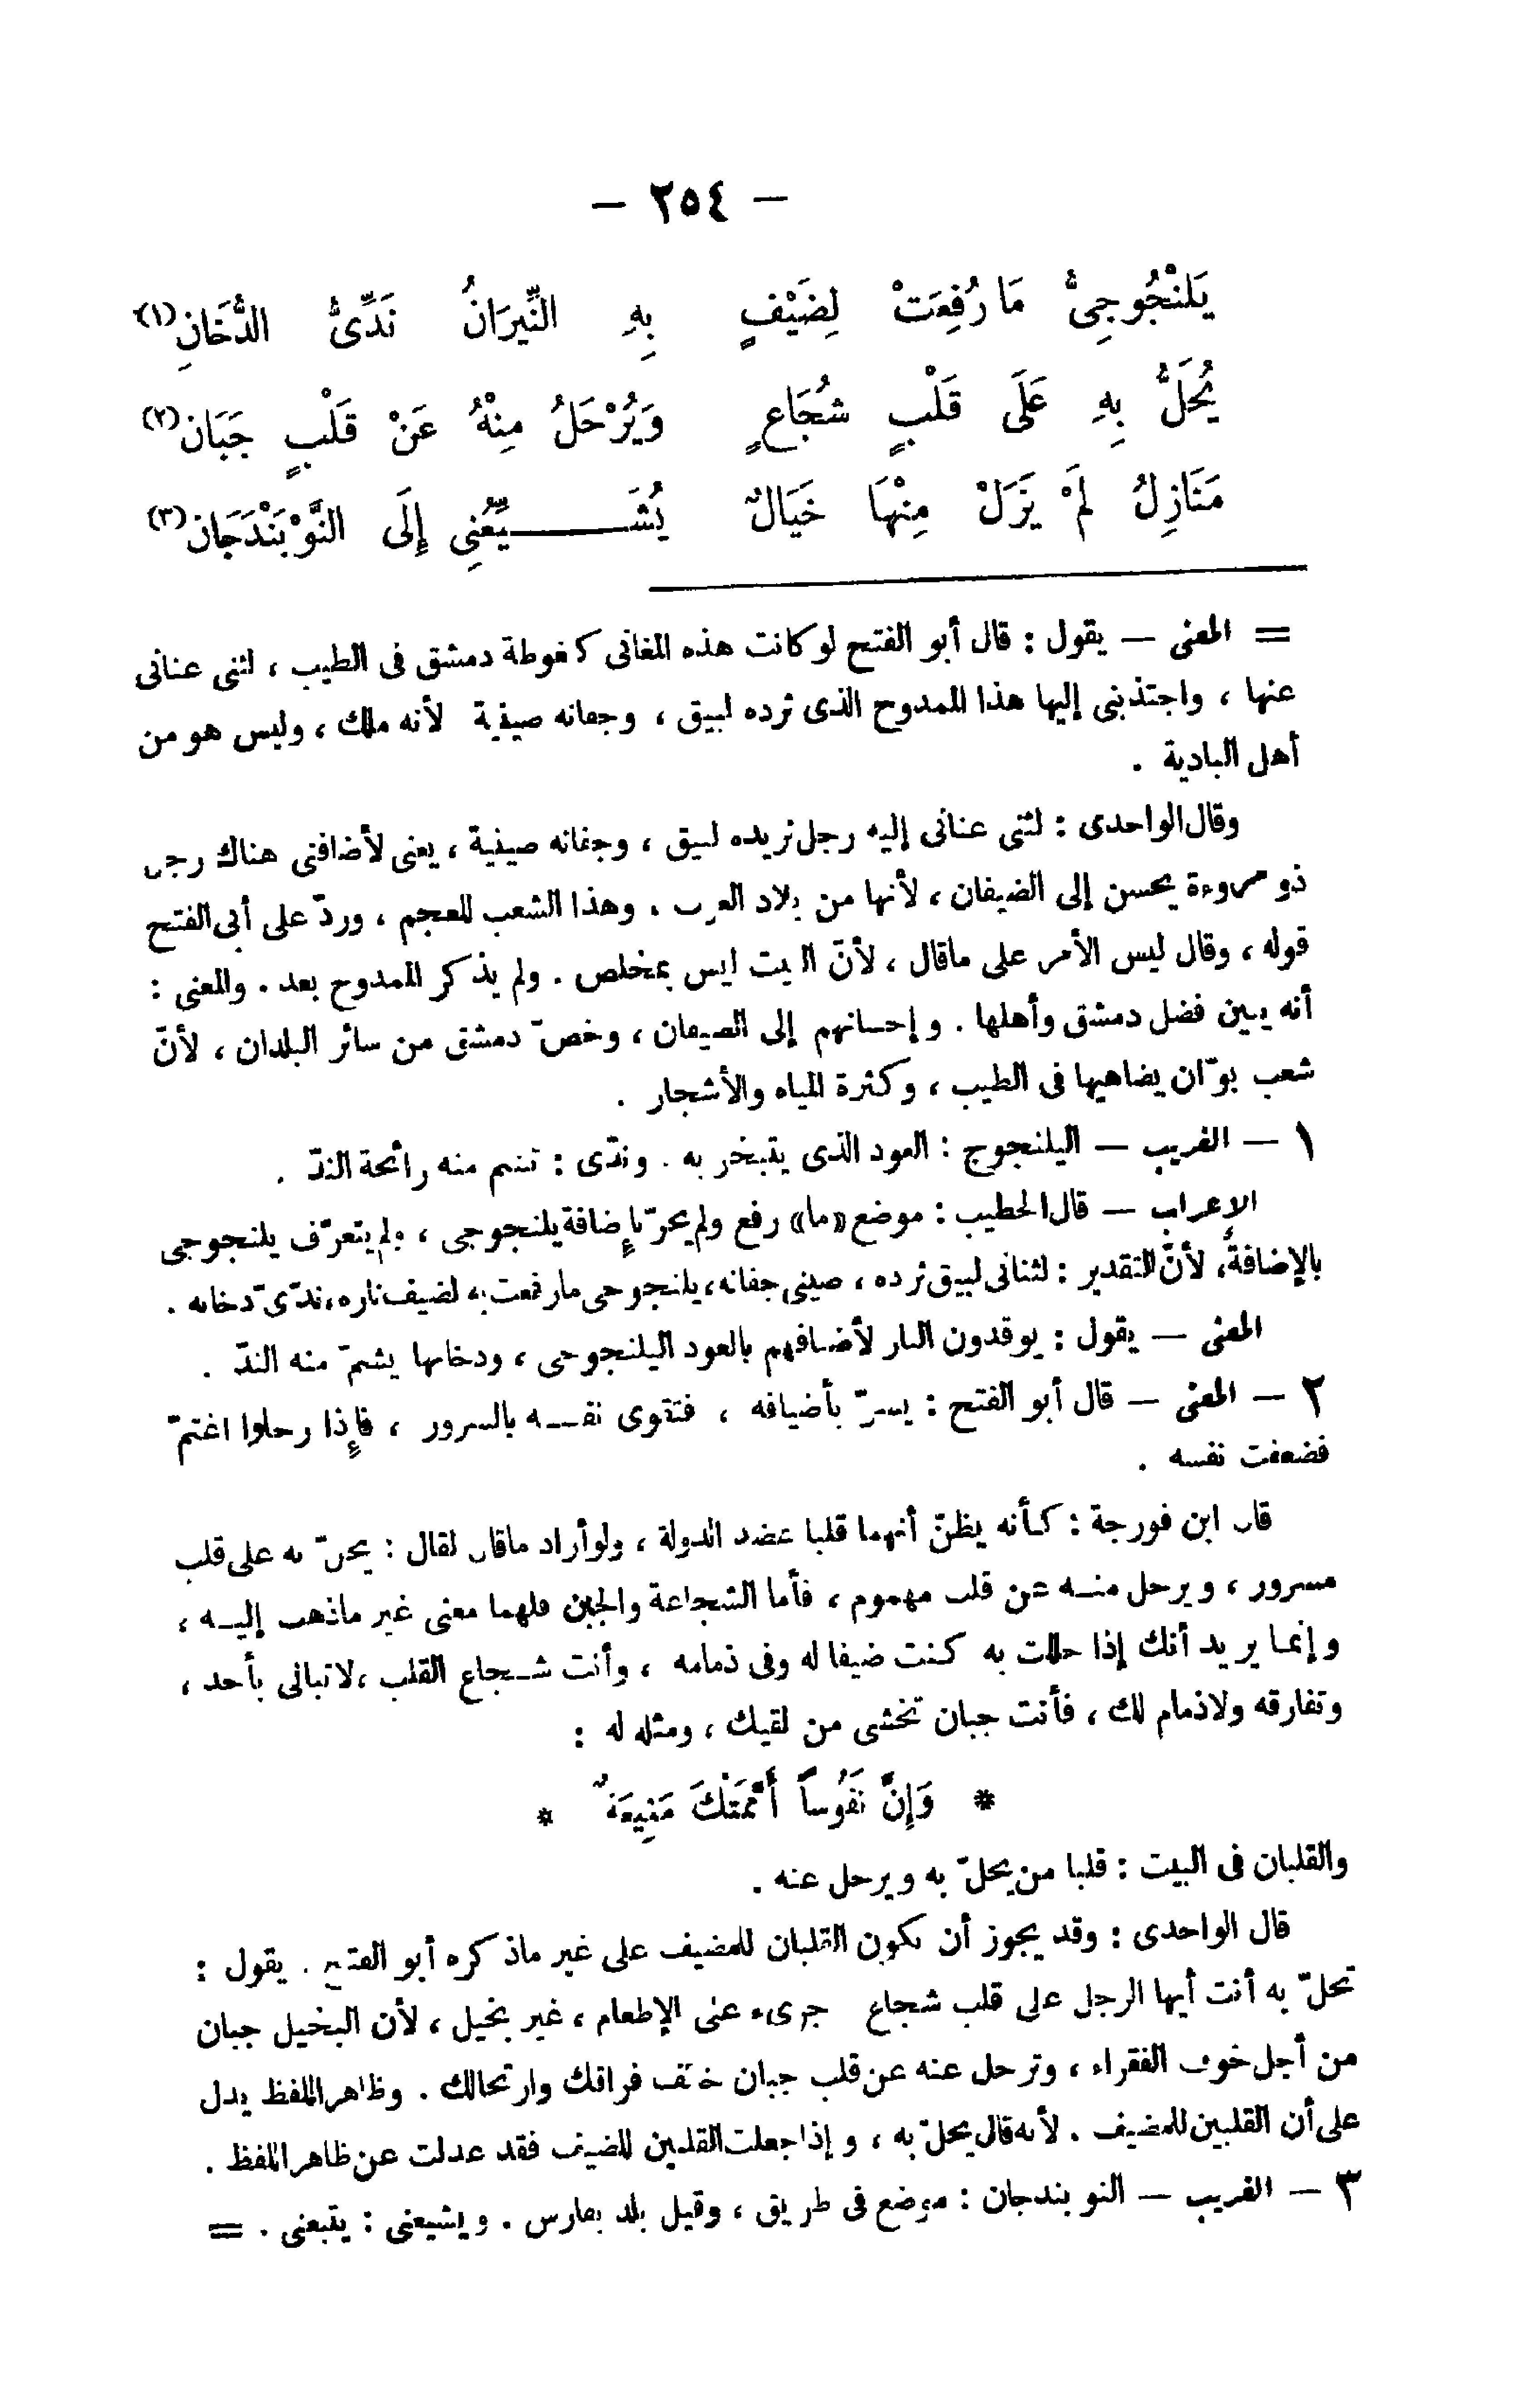 — ٢٥٤ —
يَلَنْجُوجِىُّ مَا رُفِعَتْ لِضَيْفٍ بِهِ النِّيرَانُ نَدِّىُّ الدُّخَانِ (١)
يُحَلُّ بِهِ عَلَى قَلْبٍ شُجَاعٍ وَيُرْحَلُ مِنْهُ عَنْ قَلْبٍ جَبَانِ (٢)
مَنَازِلُ لَمْ يَزَلْ مِنْهَا خَيَالٌ يُشَـــيِّعُنِى إِلَى النَّوْبَنْدَجَانِ (٣)
= المعنى — يقول : قال أبو الفتح لو كانت هذه المغانى كغوطة دمشق فى الطيب ، لثنى عنانى
عنها ، واجتذبنى إليها هذا الممدوح الذى ثرده لبيق ، وجفانه صينية لأنه ملك ، وليس هو من
أهل البادية .
وقال الواحدى : لثنى عنانى إليه رجل ثريده لبيق ، وجفانه صينية ، يعنى لأضافنى هناك رجل
ذو مروءة يحسن إلى الضيفان ، لأنها من بلاد العرب . وهذا الشعب للعجم ، وردّ على أبى الفتح
قوله ، وقال ليس الأمر على ماقال ، لأنّ البيت ليس بمخلص . ولم يذكر الممدوح بعد . والمعنى :
أنه يبين فضل دمشق وأهلها . وإحسانهم إلى الضيفان ، وخصّ دمشق من سائر البلدان ، لأنّ
شعب بوّان يضاهيها فى الطيب ، وكثرة المياه والأشجار .
١ — الغريب — اليلنجوج : العود الذى يتبخر به . وندّى : تنسم منه رائحة الندّ .
الإعراب — قال الخطيب : موضع «ما» رفع ولم يجرّ بإضافة يلنجوجى ، ولم يتعرّف يلنجوجى
بالإضافة، لأنّ التقدير : لثنانى لبيق ثرده ، صينى جفانه، يلنجوجى مارفعت به لضيف ناره، ندّىّ دخانه .
المعنى — يقول : يوقدون النار لأضيافهم بالعود اليلنجوجى ، ودخانها يشمّ منه الندّ .
٢ — المعنى — قال أبو الفتح : يسرّ بأضيافه ، فتقوى نفسه بالسرور ، فإذا رحلوا اغتمّ
فضعفت نفسه .
قال ابن فورجة : كأنه يظنّ أنهما قلبا عضد الدولة ، ولو أراد ماقال لقال : يحلّ به على قلب
مسرور ، ويرحل منه عن قلب مهموم ، فأما الشجاعة والجبن فلهما معنى غير ماذهب إليه ،
وإنما يريد أنك إذا حللت به كنت ضيفا له وفى ذمامه ، وأنت شجاع القلب ، لاتبالى بأحد ،
وتفارقه ولاذمام لك ، فأنت جبان تخشى من لقيك ، ومثله له :
* وَإِنَّ نَفُوساً أَمَّمَتْكَ مَنِيعَةٌ *
والقلبان فى البيت : قلبا من يحلّ به ويرحل عنه .
قال الواحدى : وقد يجوز أن يكون القلبان للمضيف على غير ماذكره أبو الفتح . يقول :
تحلّ به أنت أيها الرجل على قلب شجاع جرىء على الإطعام ، غير بخيل ، لأن البخيل جبان
من أجل خوف الفقراء ، وترحل عنه عن قلب جبان خائف فراقك وارتحالك . وظاهر اللفظ يدل
على أن القلبين للمضيف . لأنه قال يحلّ به ، وإذا جعلت القلبين للضيف فقد عدلت عن ظاهر اللفظ .
٣ — الغريب — النوبندجان : موضع فى طريق ، وقيل بلد بفارس . ويشيعنى : يتبعنى . =